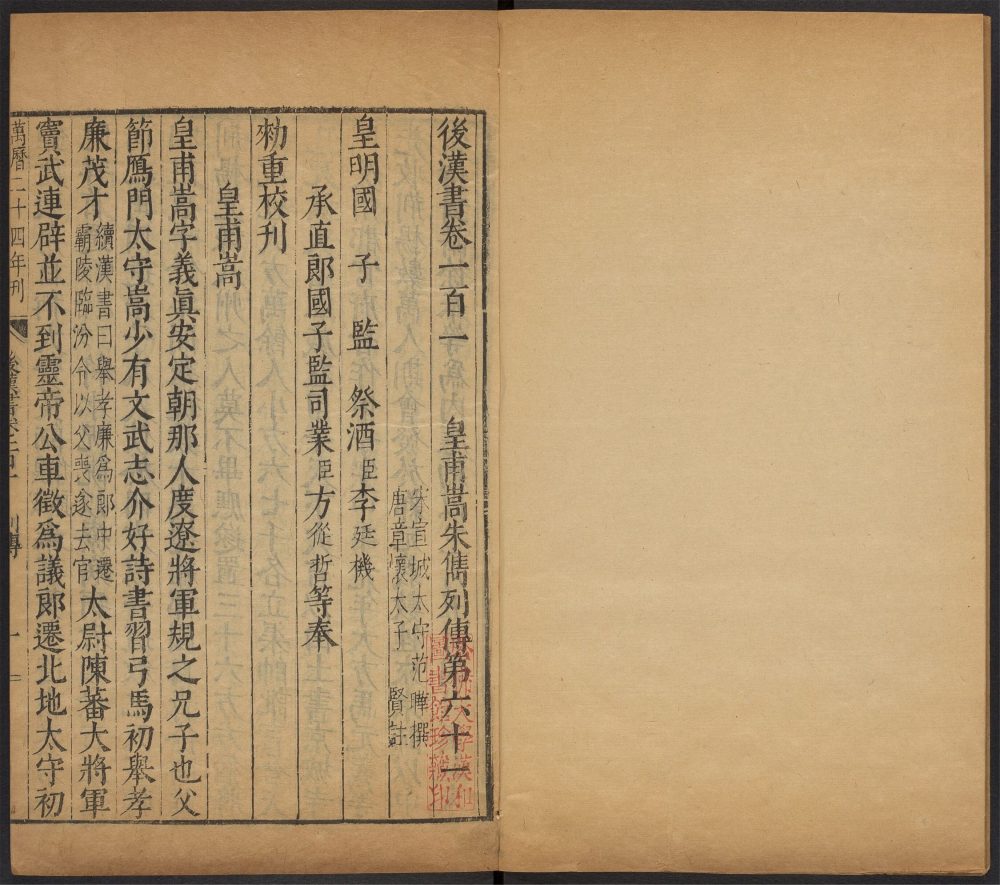 後漢書卷一百一 皇甫嵩朱儁列傳第六十一
宋宣城太守范曄撰
唐章懷太子賢註
皇明國子監祭酒臣李廷機
承直郎國子監司業臣方從哲等奉
勑重校刊
皇甫嵩
皇甫嵩字義眞安定朝那人度遼將軍規之兄子也父
節鴈門太守嵩少有文武志介好詩書習弓馬初舉孝
廉茂才續漢書曰舉孝廉爲郎中遷霸陵臨汾令以父喪遂去官太尉陳蕃大將軍
竇武連辟並不到靈帝公車徵爲議郎遷北地太守初
萬曆二十四年刊
列傳 一
哈佛大學漢和
圖書館珍藏印